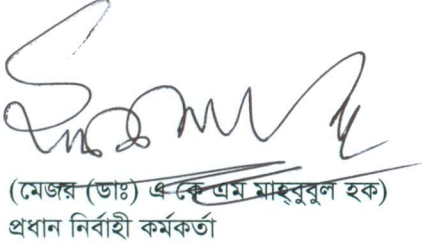 (মেজর (ডাঃ) এ কে এম মাহ্‌বুবুল হক)
প্রধান নির্বাহী কর্মকর্তা